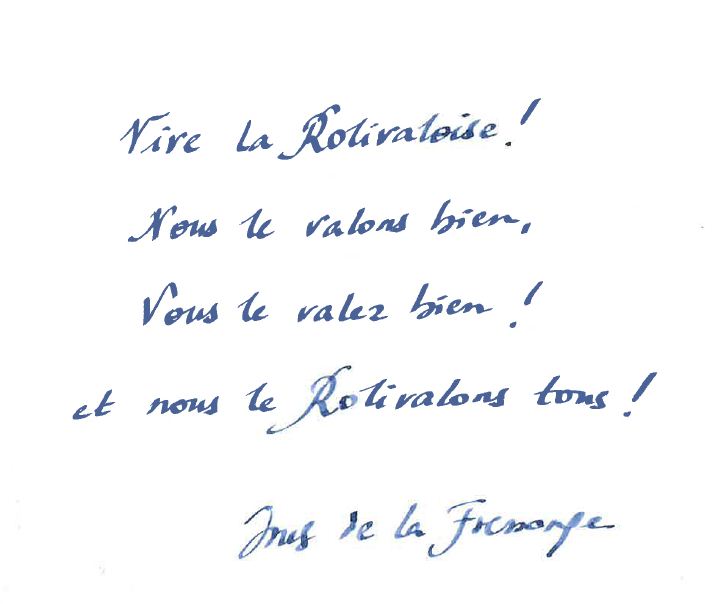 Vive la Rolivaloise !
Nous le valons bien,
Vous le valez bien !
et nous le Rolivalons tous !
de la